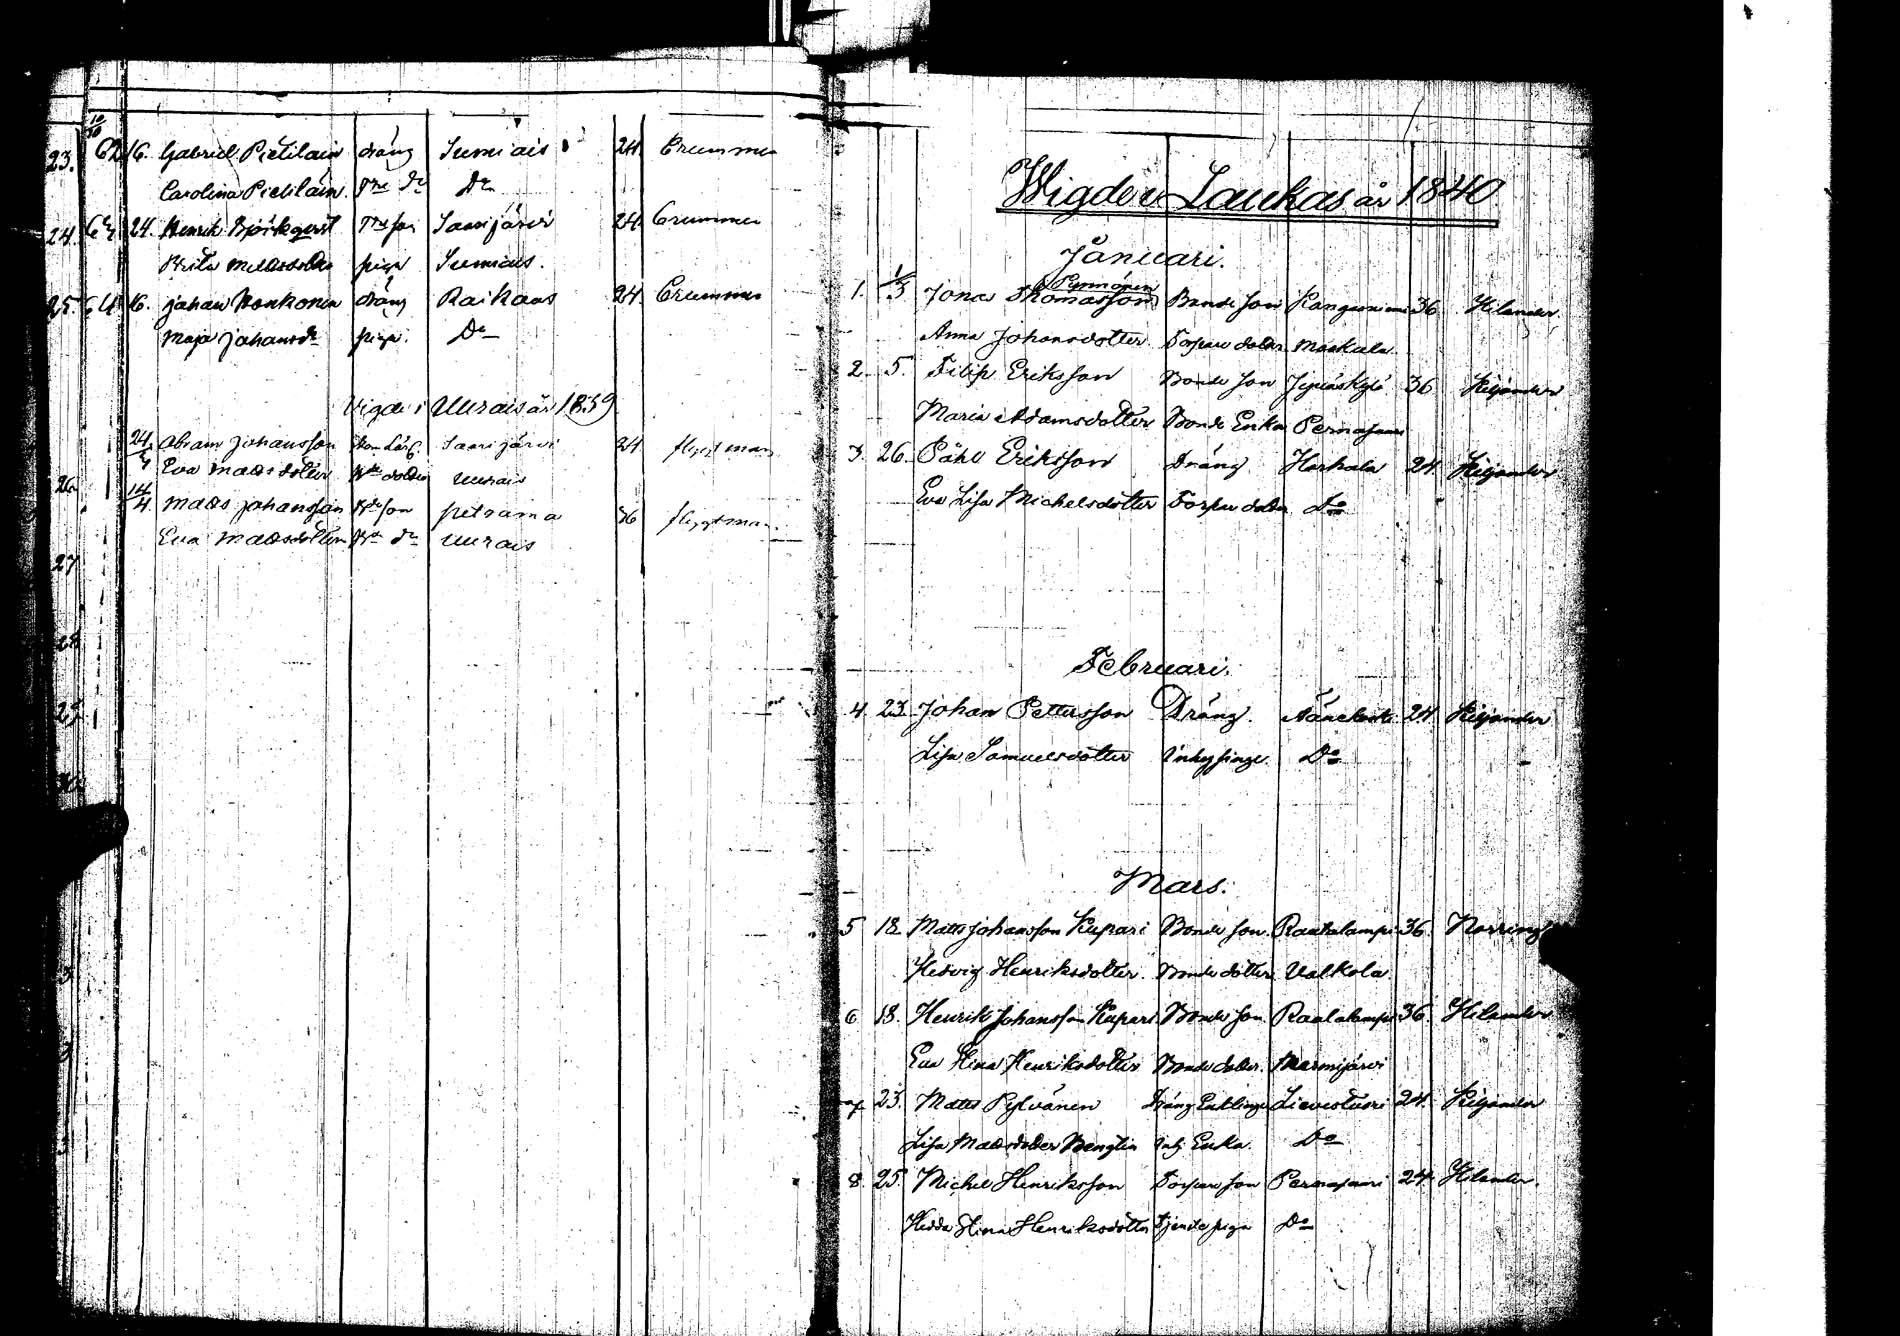 10/10
23. 62 16. Gabriel Pietiläin dräng Sumiais 24. Crummer
Carolina Pietiläin. Do
24. 24. Henrik Björkqvist son Saarijärvi 24. Crummer
Brita piga Sumiais.
25. 64 16. Johan Honkonen dräng Raikaas 24 Crummer
Maja Johansdr piga. Do
Vigde i Uurais år 1839
24 Abram Johansson Saarijärvi 24 flygtman
Eva Matsdotter Uurais
26
14/4. Mats Johansson son Petrama 36 flygtman.
Eva Matsdotter Uurais
27
28
Wigde i Laukas år 1840
Januari.
Pynnönen
1. 1/3 Jonas Thomasson Bonde son Kangasniemi 36 Hilander
Anna Johansdotter Torpare dotter
2 5. Filip Eriksson Bonde son Jyväskylä 36 Kiljander
Maria Adamsdotter Bonde Enka Pernasaari
3. 26. Påhl Eriksson Dräng Horhala 24 Kiljander
Eva Lisa Michelsdotter Torpare dotter Do
Februari.
4 23 Johan Pettersson Dräng. Äänekoski 24 Kiljander
Lisa Samuelsdotter Inhysinge Do
Mars.
5 18 Matts Johansson Kupari Bonde son. Rautalampi 36. Norring
Hedvig Henriksdotter. Bonde dotter Valkola.
6 18. Henrik Johansson Kupari Bonde son Rautalampi 36. Hilander
Eva Stina Henriksdotter Bonde dotter. Marmijärvi
23. Matts Pylvänen Dräng Enkling Lievestuore 24. Kiljander
Lisa Matsdotter Bengtin Inh. Enka. Do
8. 25. Michel Henriksson Torpare son Pernasaari 24. Hilander.
Hedda Stina Henriksdotter Tjenste piga Do